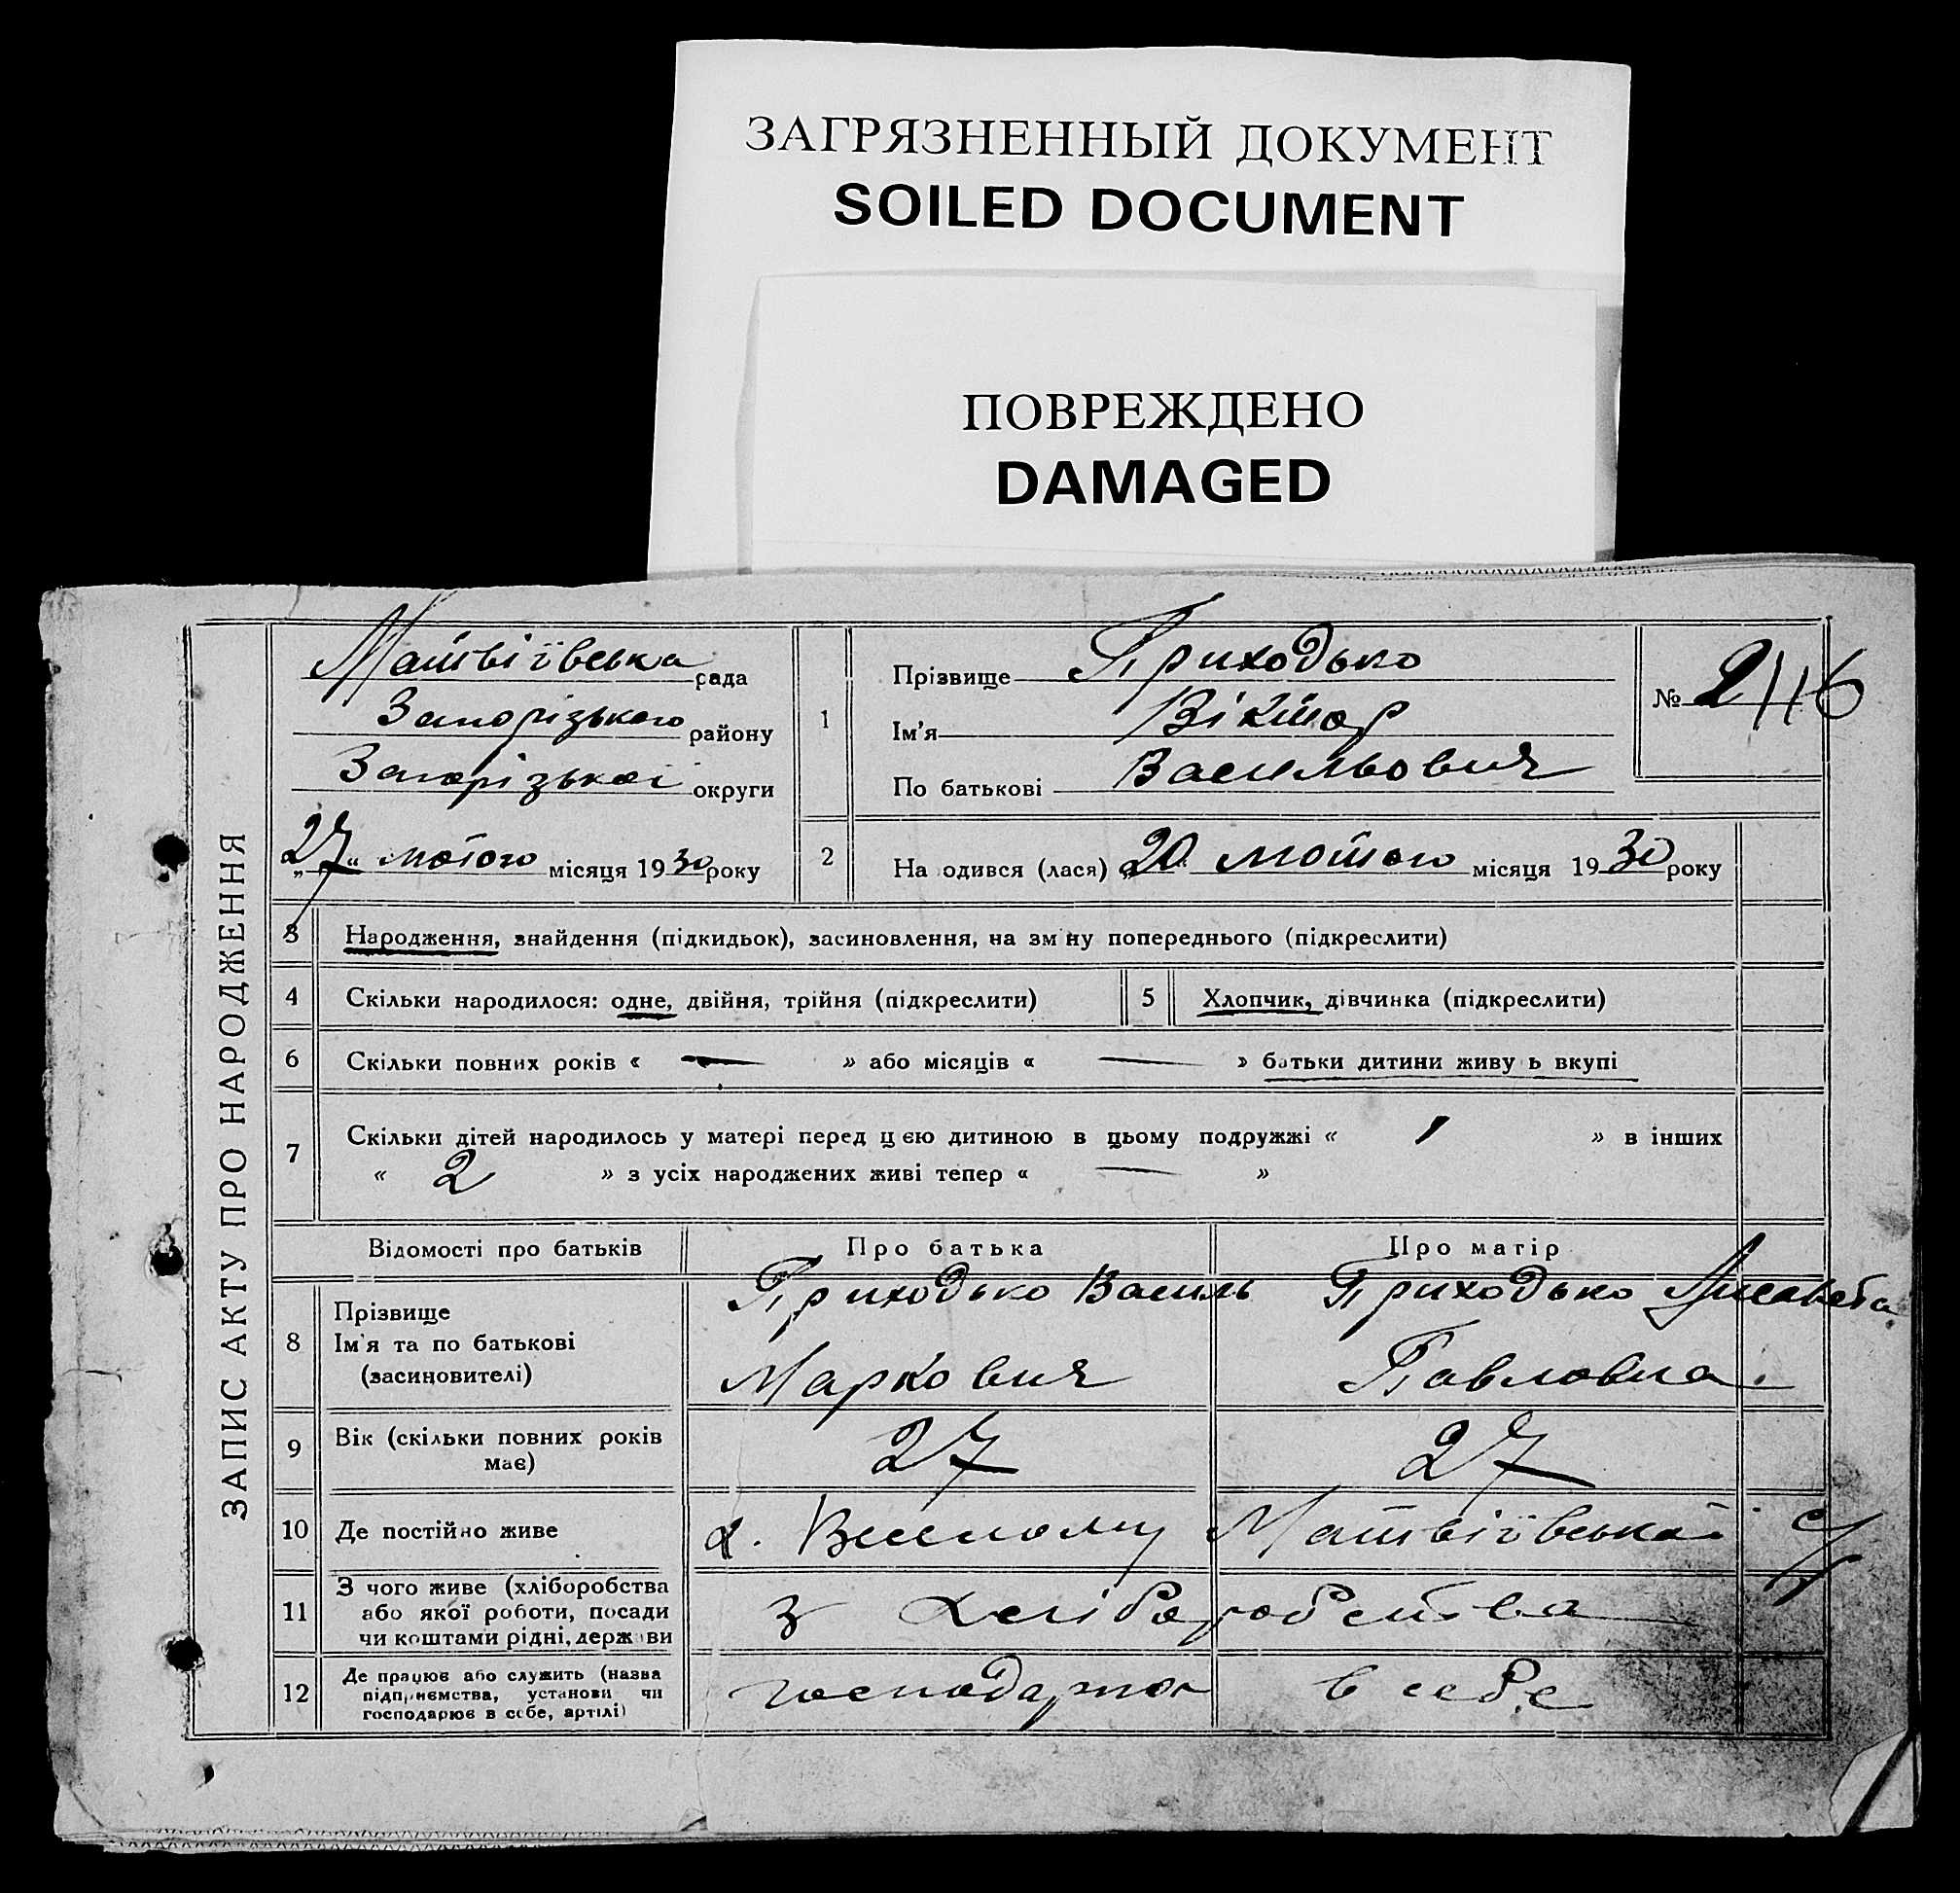 ЗАГРЯЗНЕННЫЙ ДОКУМЕНТ
SOILED DOCUMENT
ПОВРЕЖДЕНО
DAMAGED
ЗАПИС АКТУ ПРО НАРОДЖЕННЯ
Матвіївська рада
Запорізького району
Запорізької округи
„27“ лютого місяця 1930 року
1
Прізвище Приходько
Ім'я Віктор
По батькові Васильович
№ 2/116
2
На одився (лася) „20“ лютого місяця 1930 року
3 Народження, знайдення (підкидьок), засиновлення, на зм ну попереднього (підкреслити)
4 Скільки народилося: одне, двійня, трійня (підкреслити)
5 Хлопчик, дівчинка (підкреслити)
6 Скільки повних років « — » або місяців « — » батьки дитини живу ь вкупі
7 Скільки дітей народилось у матері перед цією дитиною в цьому подружжі « 1 » в інших
« 2 » з усіх народжених живі тепер « — »
Відомості про батьків Про батька Про матір
8 Прізвище
Ім'я та по батькові
(засиновителі)
Приходько Василь
Маркович
Приходько Лисавета
Павловна.
9 Вік (скільки повних років
має)
27 27
10 Де постійно живе
х. Матвіївської с/р
11 З чого живе (хліборобства
або якої роботи, посади
чи коштами рідні, держави
з хліборобства
12 Де працює або служить (назва
підприємства, установи чи
господарює в себе, артілі)
господарює в себе